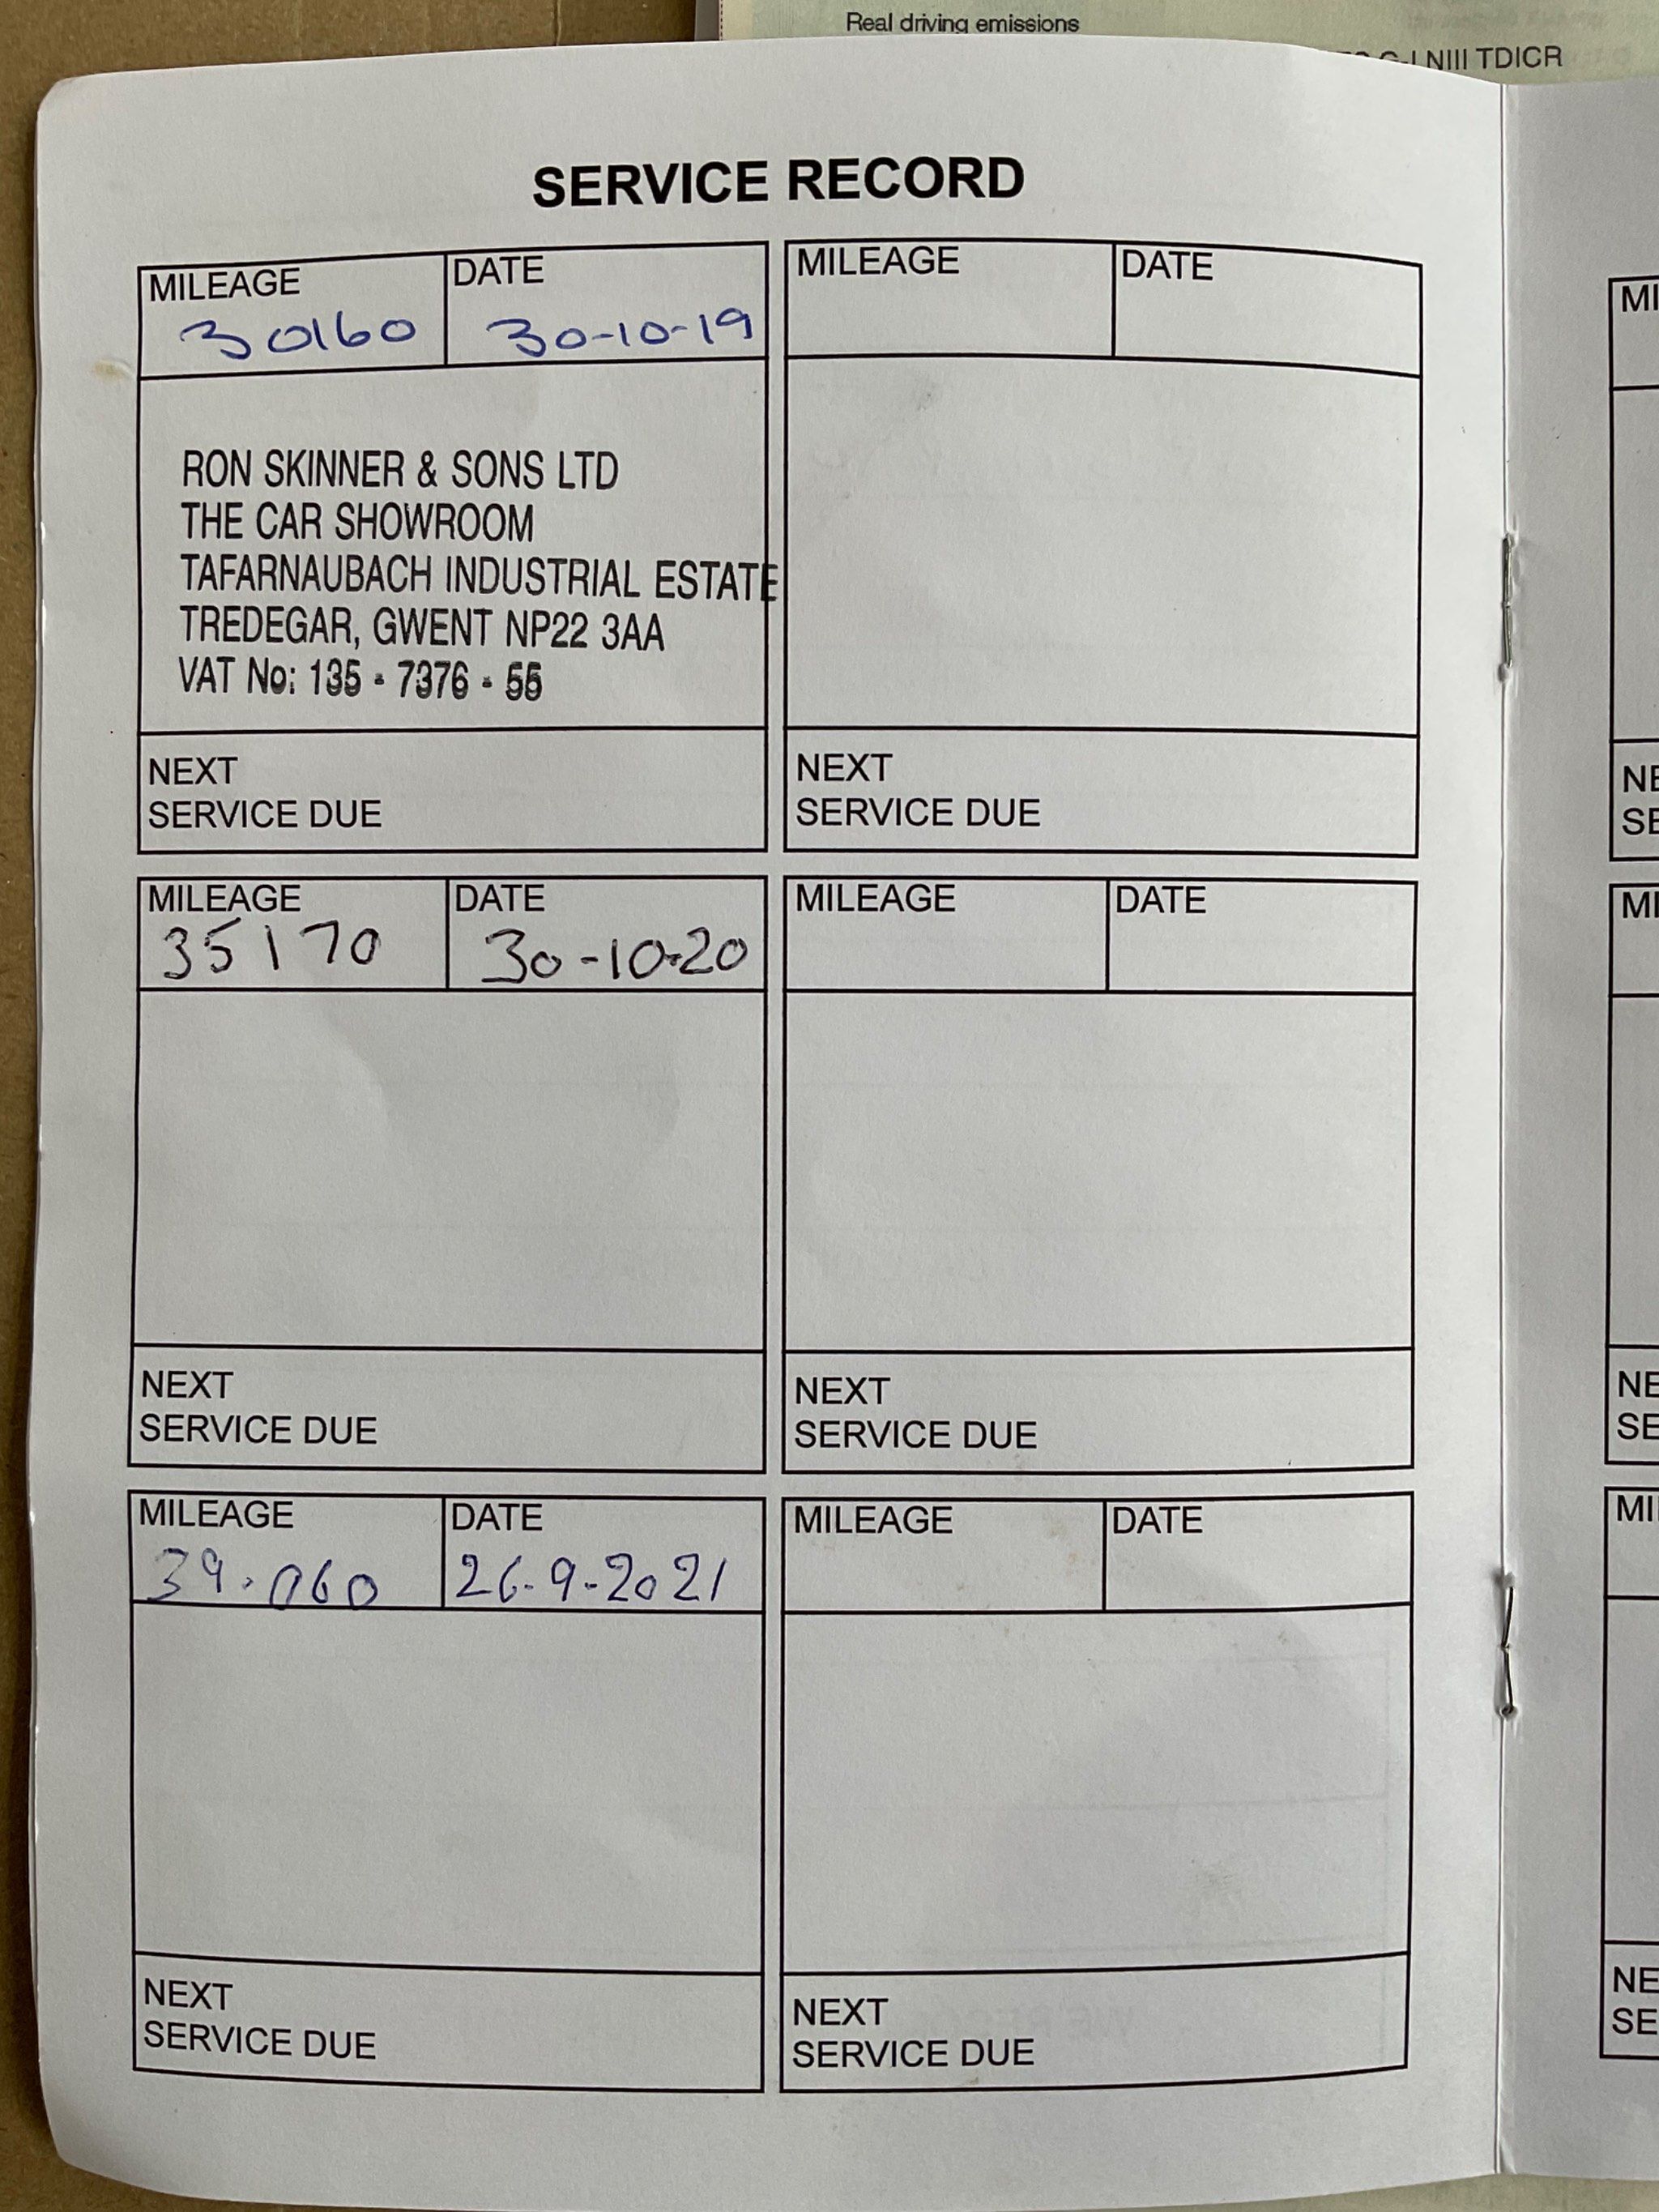 Real driving emissions
NIII TDICR
SERVICE RECORD
MILEAGE DATE
30160 30-10-19
RON SKINNER & SONS LTD
THE CAR SHOWROOM
TAFARNAUBACH INDUSTRIAL ESTATE
TREDEGAR, GWENT NP22 3AA
VAT No: 135 - 7376 - 55
NEXT
SERVICE DUE
MILEAGE DATE
NEXT
SERVICE DUE
MILEAGE DATE
35170 30-10-20
NEXT
SERVICE DUE
MILEAGE DATE
NEXT
SERVICE DUE
MILEAGE DATE
39.060 26-9-2021
NEXT
SERVICE DUE
MILEAGE DATE
NEXT
SERVICE DUE
MI
NE
SE
MI
NE
SE
MI
NE
SE